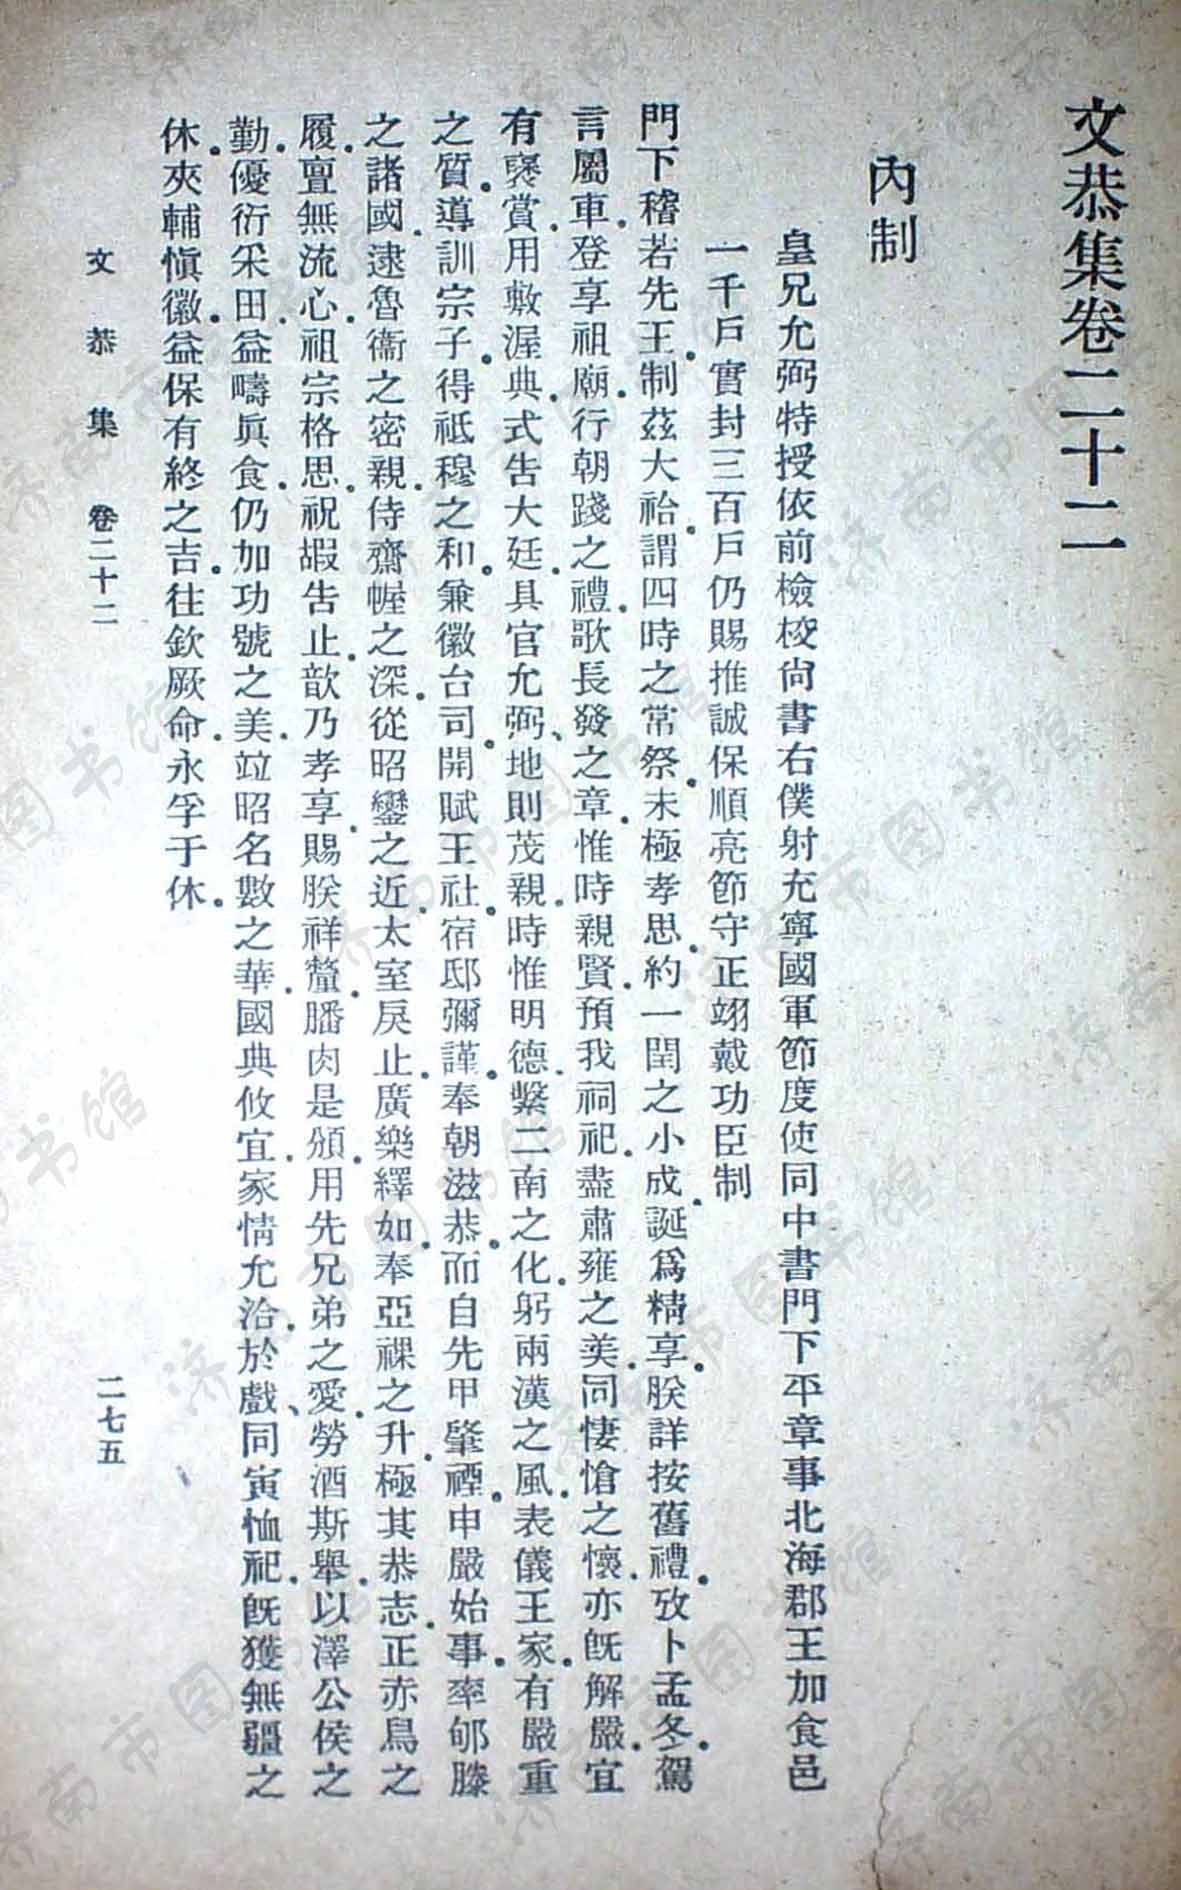 文恭集卷二十二
內制
皇兄允弼特授依前檢校尙書右僕射充寧國軍節度使同中書門下平章事北海郡王加食邑
一千戶實封三百戶仍賜推誠保順亮節守正翊戴功臣制
門下稽若先王制茲大祫謂四時之常祭未極孝思約一閏之小成誕爲精享朕詳按舊禮攷卜孟冬駕
言屬車登享祖廟行朝踐之禮歌長發之章惟時親賢預我祠祀盡肅雍之美同悽愴之懷亦旣解嚴宜
有襃賞用敷渥典式告大廷具官允弼地則茂親時惟明德繫二南之化躬兩漢之風表儀王家有嚴重
之質導訓宗子得祗穆之和兼徽台司開賦王社宿邸彌謹奉朝滋恭而自先甲肇禋申嚴始事率郇滕
之諸國逮魯衞之密親侍齋幄之深從昭鑾之近太室戾止廣樂繹如奉亞祼之升極其恭志正赤舄之
履亶無流心祖宗格思祝嘏告止歆乃孝享賜朕祥釐膰肉是頒用先兄弟之愛勞酒斯舉以澤公侯之
勤優衍采田益疇眞食仍加功號之美竝昭名數之華國典攸宜家情允洽於戲同寅恤祀旣獲無疆之
休夾輔愼徽益保有終之吉往欽厥命永孚于休
文恭集 卷二十二 二七五
济南市图书馆